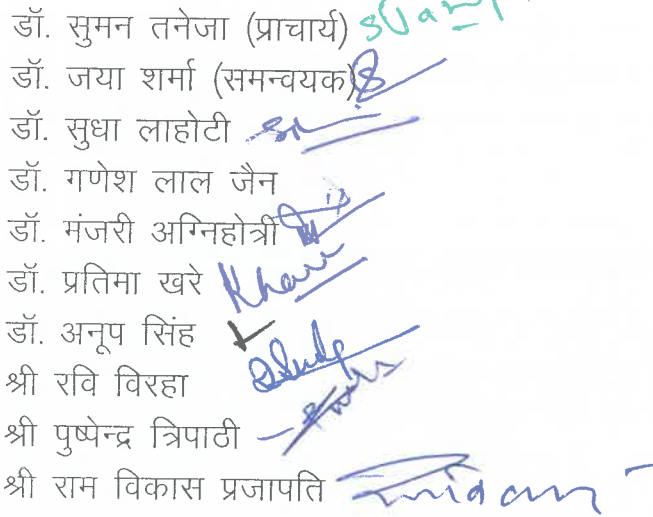 डॉ. सुमन तनेजा (प्राचार्य)
डॉ. जया शर्मा (समन्वयक)
डॉ. सुधा लाहोटी
डॉ. गणेश लाल जैन
डॉ. मंजरी अग्निहोत्री
डॉ. प्रतिमा खरे Khare
डॉ. अनूप सिंह
श्री रवि विरहा
श्री पुष्पेन्द्र त्रिपाठी
श्री राम विकास प्रजापति